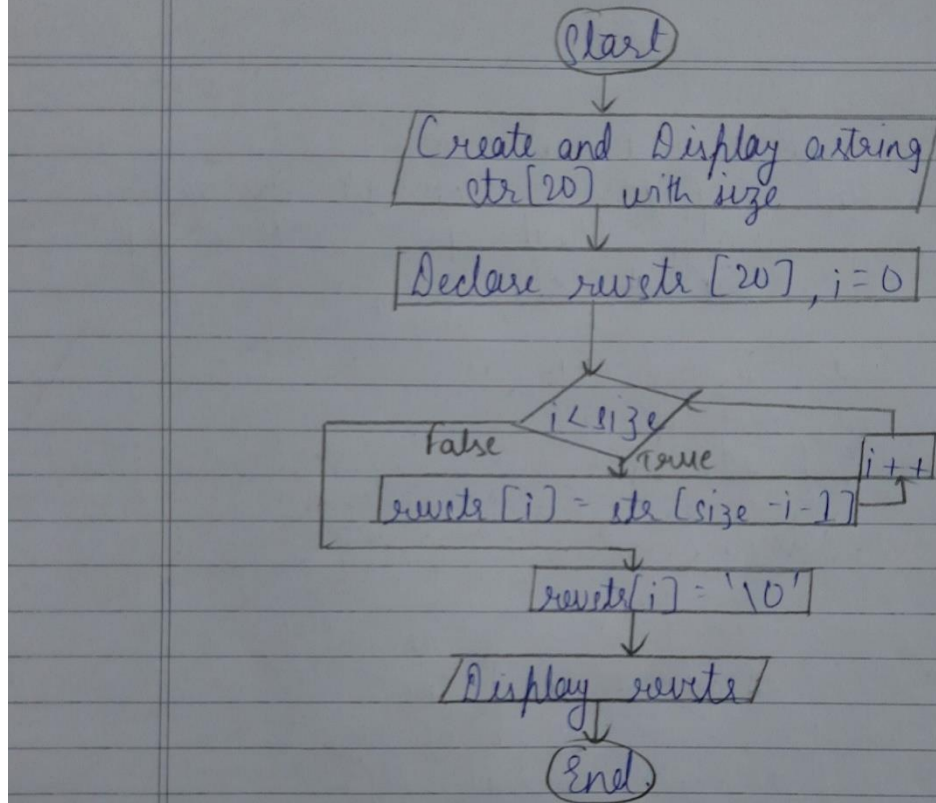 Start
Create and Display a string
str[20] with size
Declare revstr [20], i = 0
i < size
False
True
i++
revstr[i] = str[size -i-1]
revstr[i] = '\0'
Display revstr
End